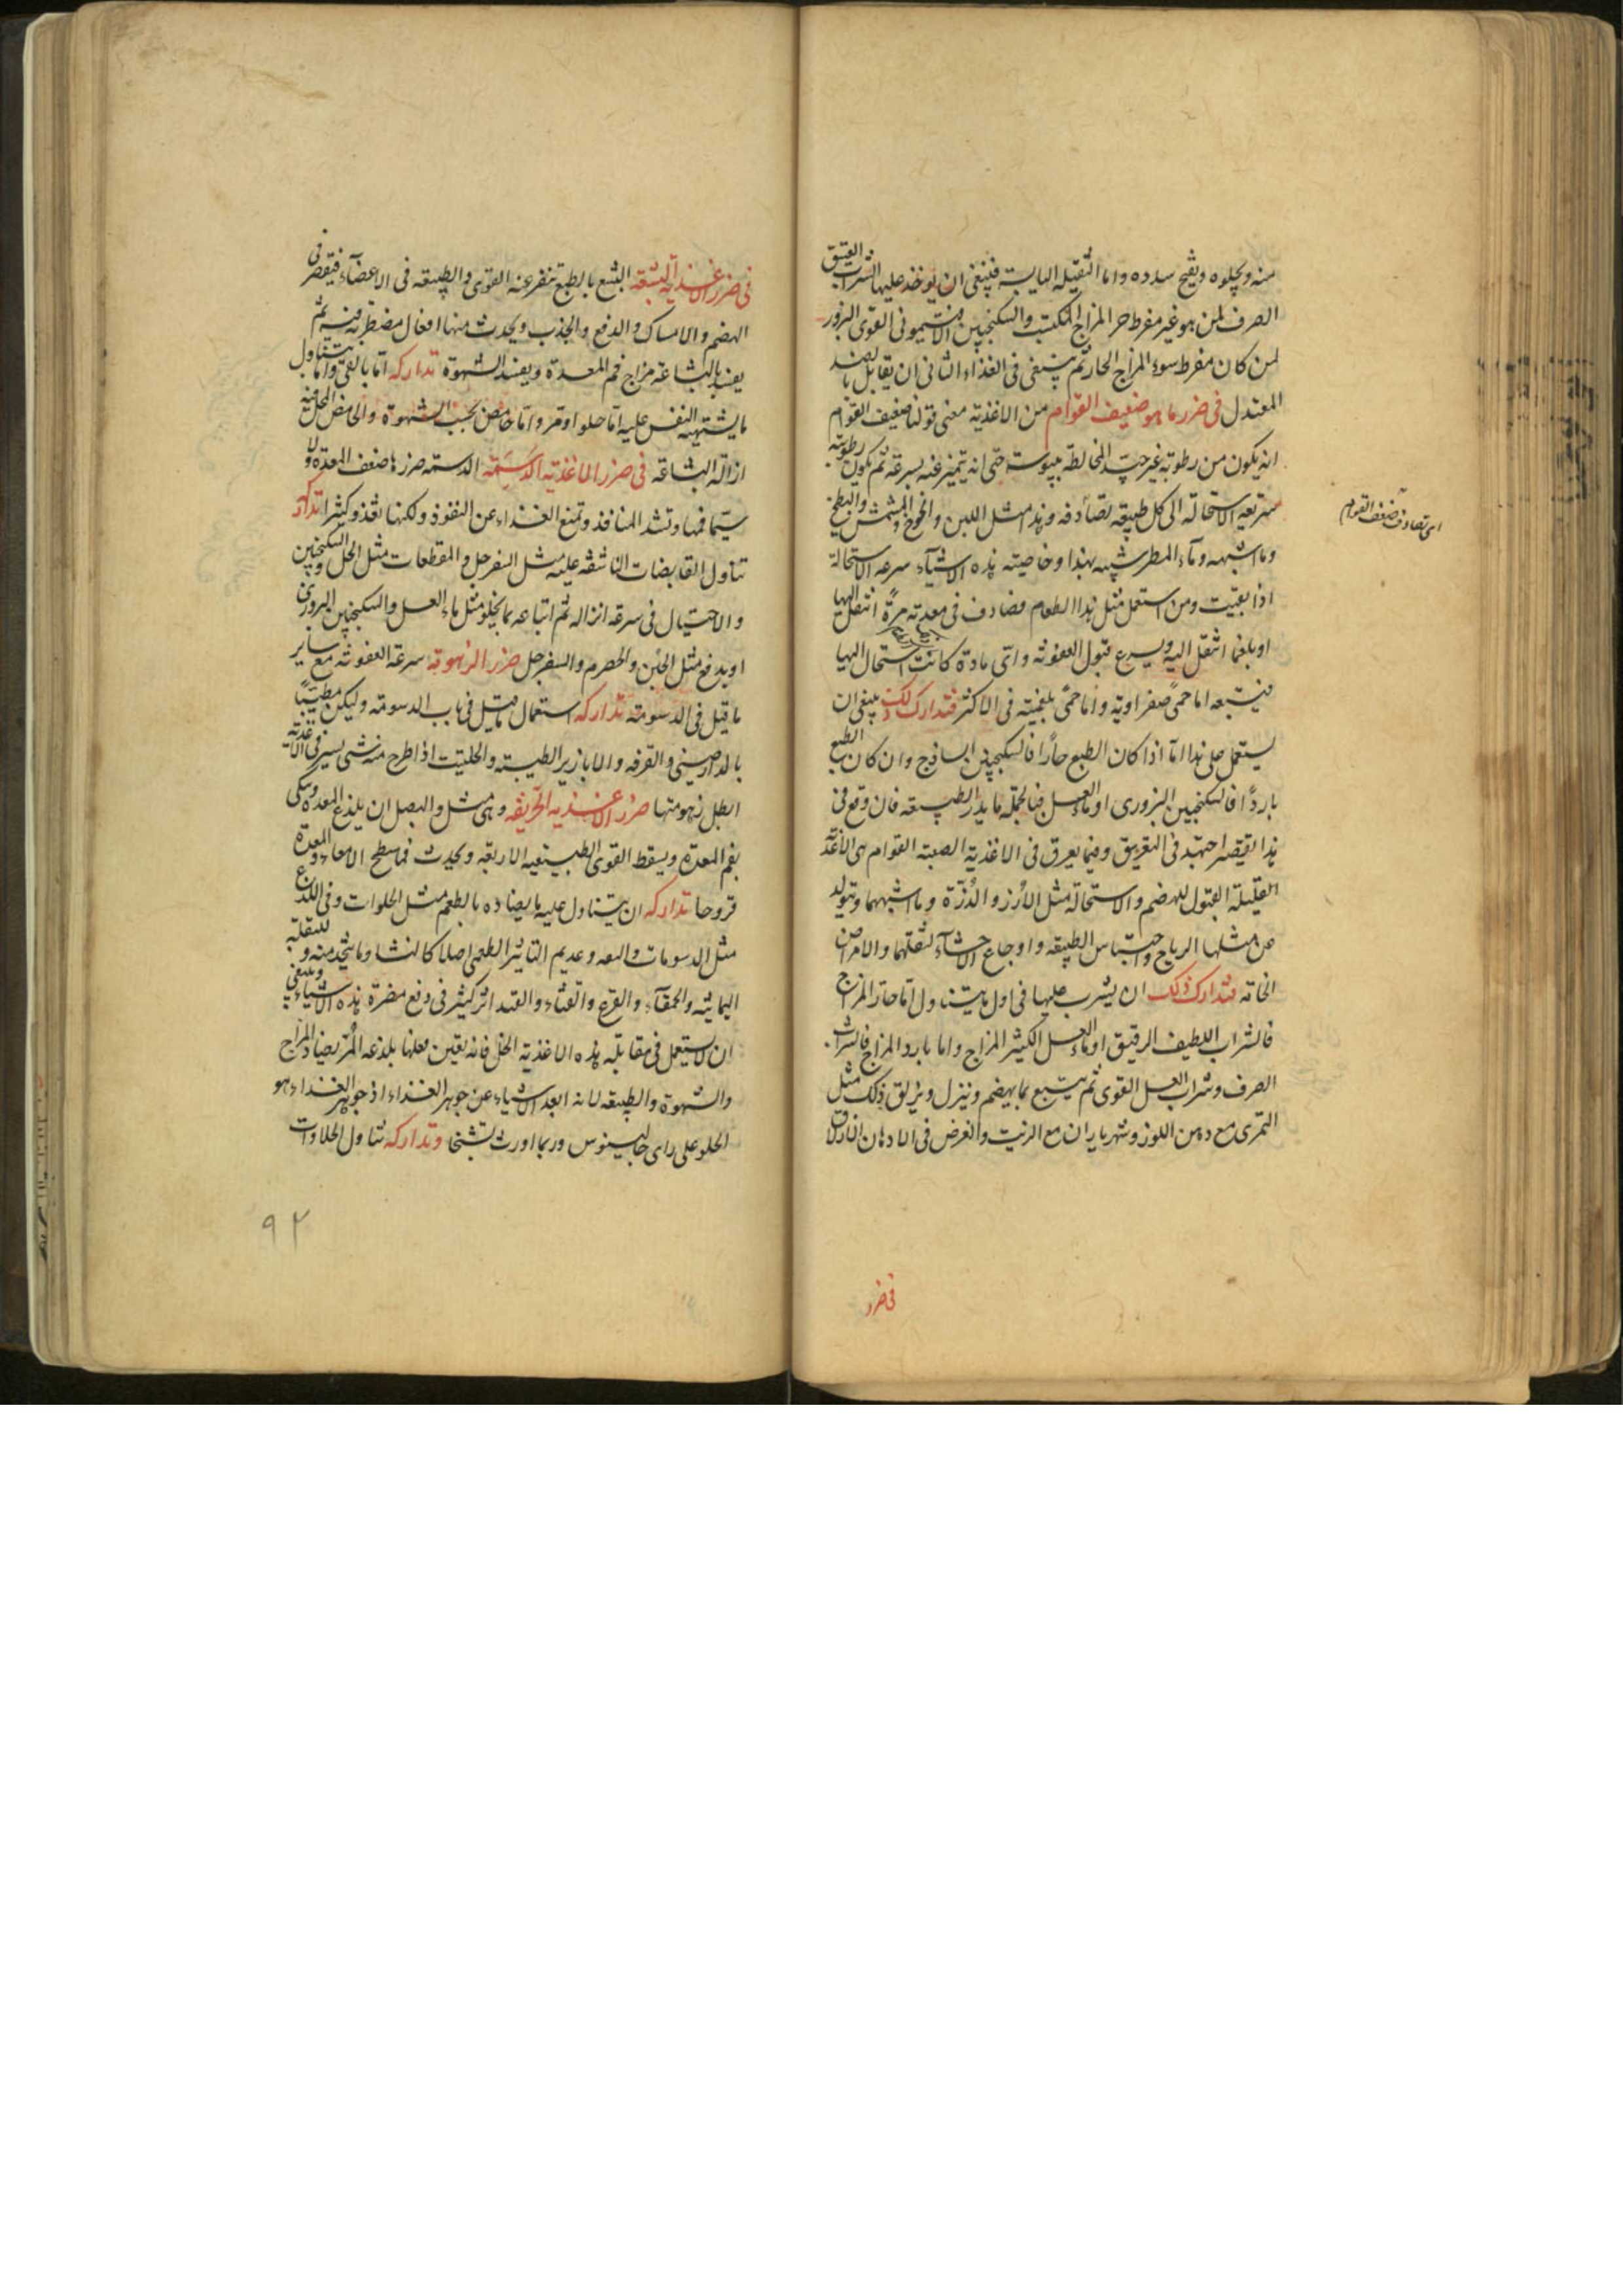 منه ويجلوه ويفتح سدده واما الثقيلة اليابسة فينبغى ان يوخذ عليها الشراب العتيق
الصرف لمن هو غير مفرط حر المزاج والسكنجبين الافتيمونى القوى البزور
لمن كان مفرط سوء المزاج الحار ثم ينبغى فى الغذاء الثانى ان يقابل بالضد
المعتدل فى ضرر ما هو ضعيف القوام من الاغذية معنى قولنا ضعيف القوام
انه يكون من رطوبة غير جيد المخالطة بيبوسة حتى انه يتميز عنه بسرعة ثم يكون رطوبته
سريعة الاستحالة الى كل طبيعة تصادفه وهذا مثل اللبن والخوخ والمشمش والبطيخ
وما اشبهه وماء المطر شبيه بهذا وخاصيته هذه الاشياء سرعة الاستحالة
اذا بقيت ومن استعمل مثل هذا الطعام فصادف فى معدته مرة انتقل اليها
او بلغما انتقل اليه ويسرع قبول العفونة واى مادة كانت استحال اليها
فيتبعه اما حمى صفراوية واما حمى بلغمية فى الاكثر فتدارك ذلك ينبغى ان
يستعمل على هذا اما اذا كان الطبع حارا فالسكنجبين الساذج وان كان الطبع
باردا فالسكنجبين البزورى او ماء العسل فبالجملة ما يدر الطبيعة فان وقع فى
هذا تقصير اجتهد فى التعريق وفيما يعرق فى الاغذية الصعبة القوام هى الاغذية
القليلة القبول للهضم والاستحالة مثل الارز والذرة وما اشبههما ويتولد
عن مثلها الرياح واحتباس الطبيعة واوجاع الاحشاء لثقلها والامراض
الخاقه فتدارك ذلك ان يشرب عليها فى اول ما يتناول اما حار المزاج
فالشراب اللطيف الرقيق او ماء العسل الكثير المزاج واما بارد المزاج فالشراب
الصرف وشراب العسل القوى ثم يتبع بما يهضم وينزل ويزلق ذلك مثل
التمرى مع دهن اللوز وشهرياران مع الزيت والغرض فى الادهان الازلاق
اى تصادف ضعف القوام
فى ضرر
فى ضرر الاغذية البشعة البشع بالطبع تنفر عنه القوى والطبيعة فى الاعضاء فيقصر فى
الهضم والامساك والدفع والجذب ويحدث منها افعال مضطربة فيه ثم
يفسد بالبشاعة مزاج فم المعدة ويفسد الشهوة تداركه اما بالقئ واما بتناول
ما يشتهيه النفس عليه اما حلو او مر واما حامض بحسب الشهوة والحامض
ازالة البشاعة فى ضرر الاغذية الدسمة الدسمة ضررها ضعف المعدة ولا
سيما فمها وتسد المنافذ وتمنع الغذاء عن النفوذ ولكنها تغذو كثيرا تداركه
تناول القابضات الناشفة عليه مثل السفرجل والمقطعات مثل الخل والسكنجبين
والاحتيال فى سرعة انزاله ثم اتباعه بما يجلو مثل ماء العسل والسكنجبين البزورى
او يدفع مثل الجبن والحصرم والسفرجل ضرر الزهومة سرعة العفونة مع ساير
ما قيل فى الدسومة تداركه استعمال ما قيل فى باب الدسومة وليكن مطيبا
بالدارصينى والقرفة والابازير الطيبة والحلتيت اذا طرح منه شى يسير فى الاغذية
ابطل زهومتها ضرر الاغذية الحريفة وهى مثل والبصل ان يلذع المعدة وينكى
بفم المعدة ويسقط القوى الطبيعية الاربعة ويحدث فى سطح الامعاء والمعدة
قروحا تداركه ان يتناول عليه ما يضاده بالطعم مثل الحلوات وفى اللذع
مثل الدسومات وعديم التاثير الطعمى اصلا كالنشا وما يتخذ منه وللبقلة
اليمانية والحمقاء والقرع والقثاء والقثد اثر كثير فى دفع مضرة هذه الاشياء وينبغى
ان لا يستعمل فى مقابلة هذه الاغذية الخل فانه يعين فعلها بلذعه المر يضاد المزاج
والشهوة والطبيعة لانه ابعد الاشياء عن جوهر الغذاء اذ جوهر الغذاء هو
الحلو على راى جالينوس وربما اورث تشنجا وتداركه تناول الحلاوات
٩٢